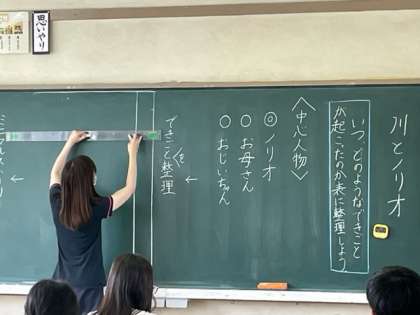 思いやり
川とノリオ
いつ、どのようなできごと
が起こったのか表に整理しよう
〈中心人物〉
◎ノリオ
○お母さん
○おじいちゃん
←
できごとを整理
←